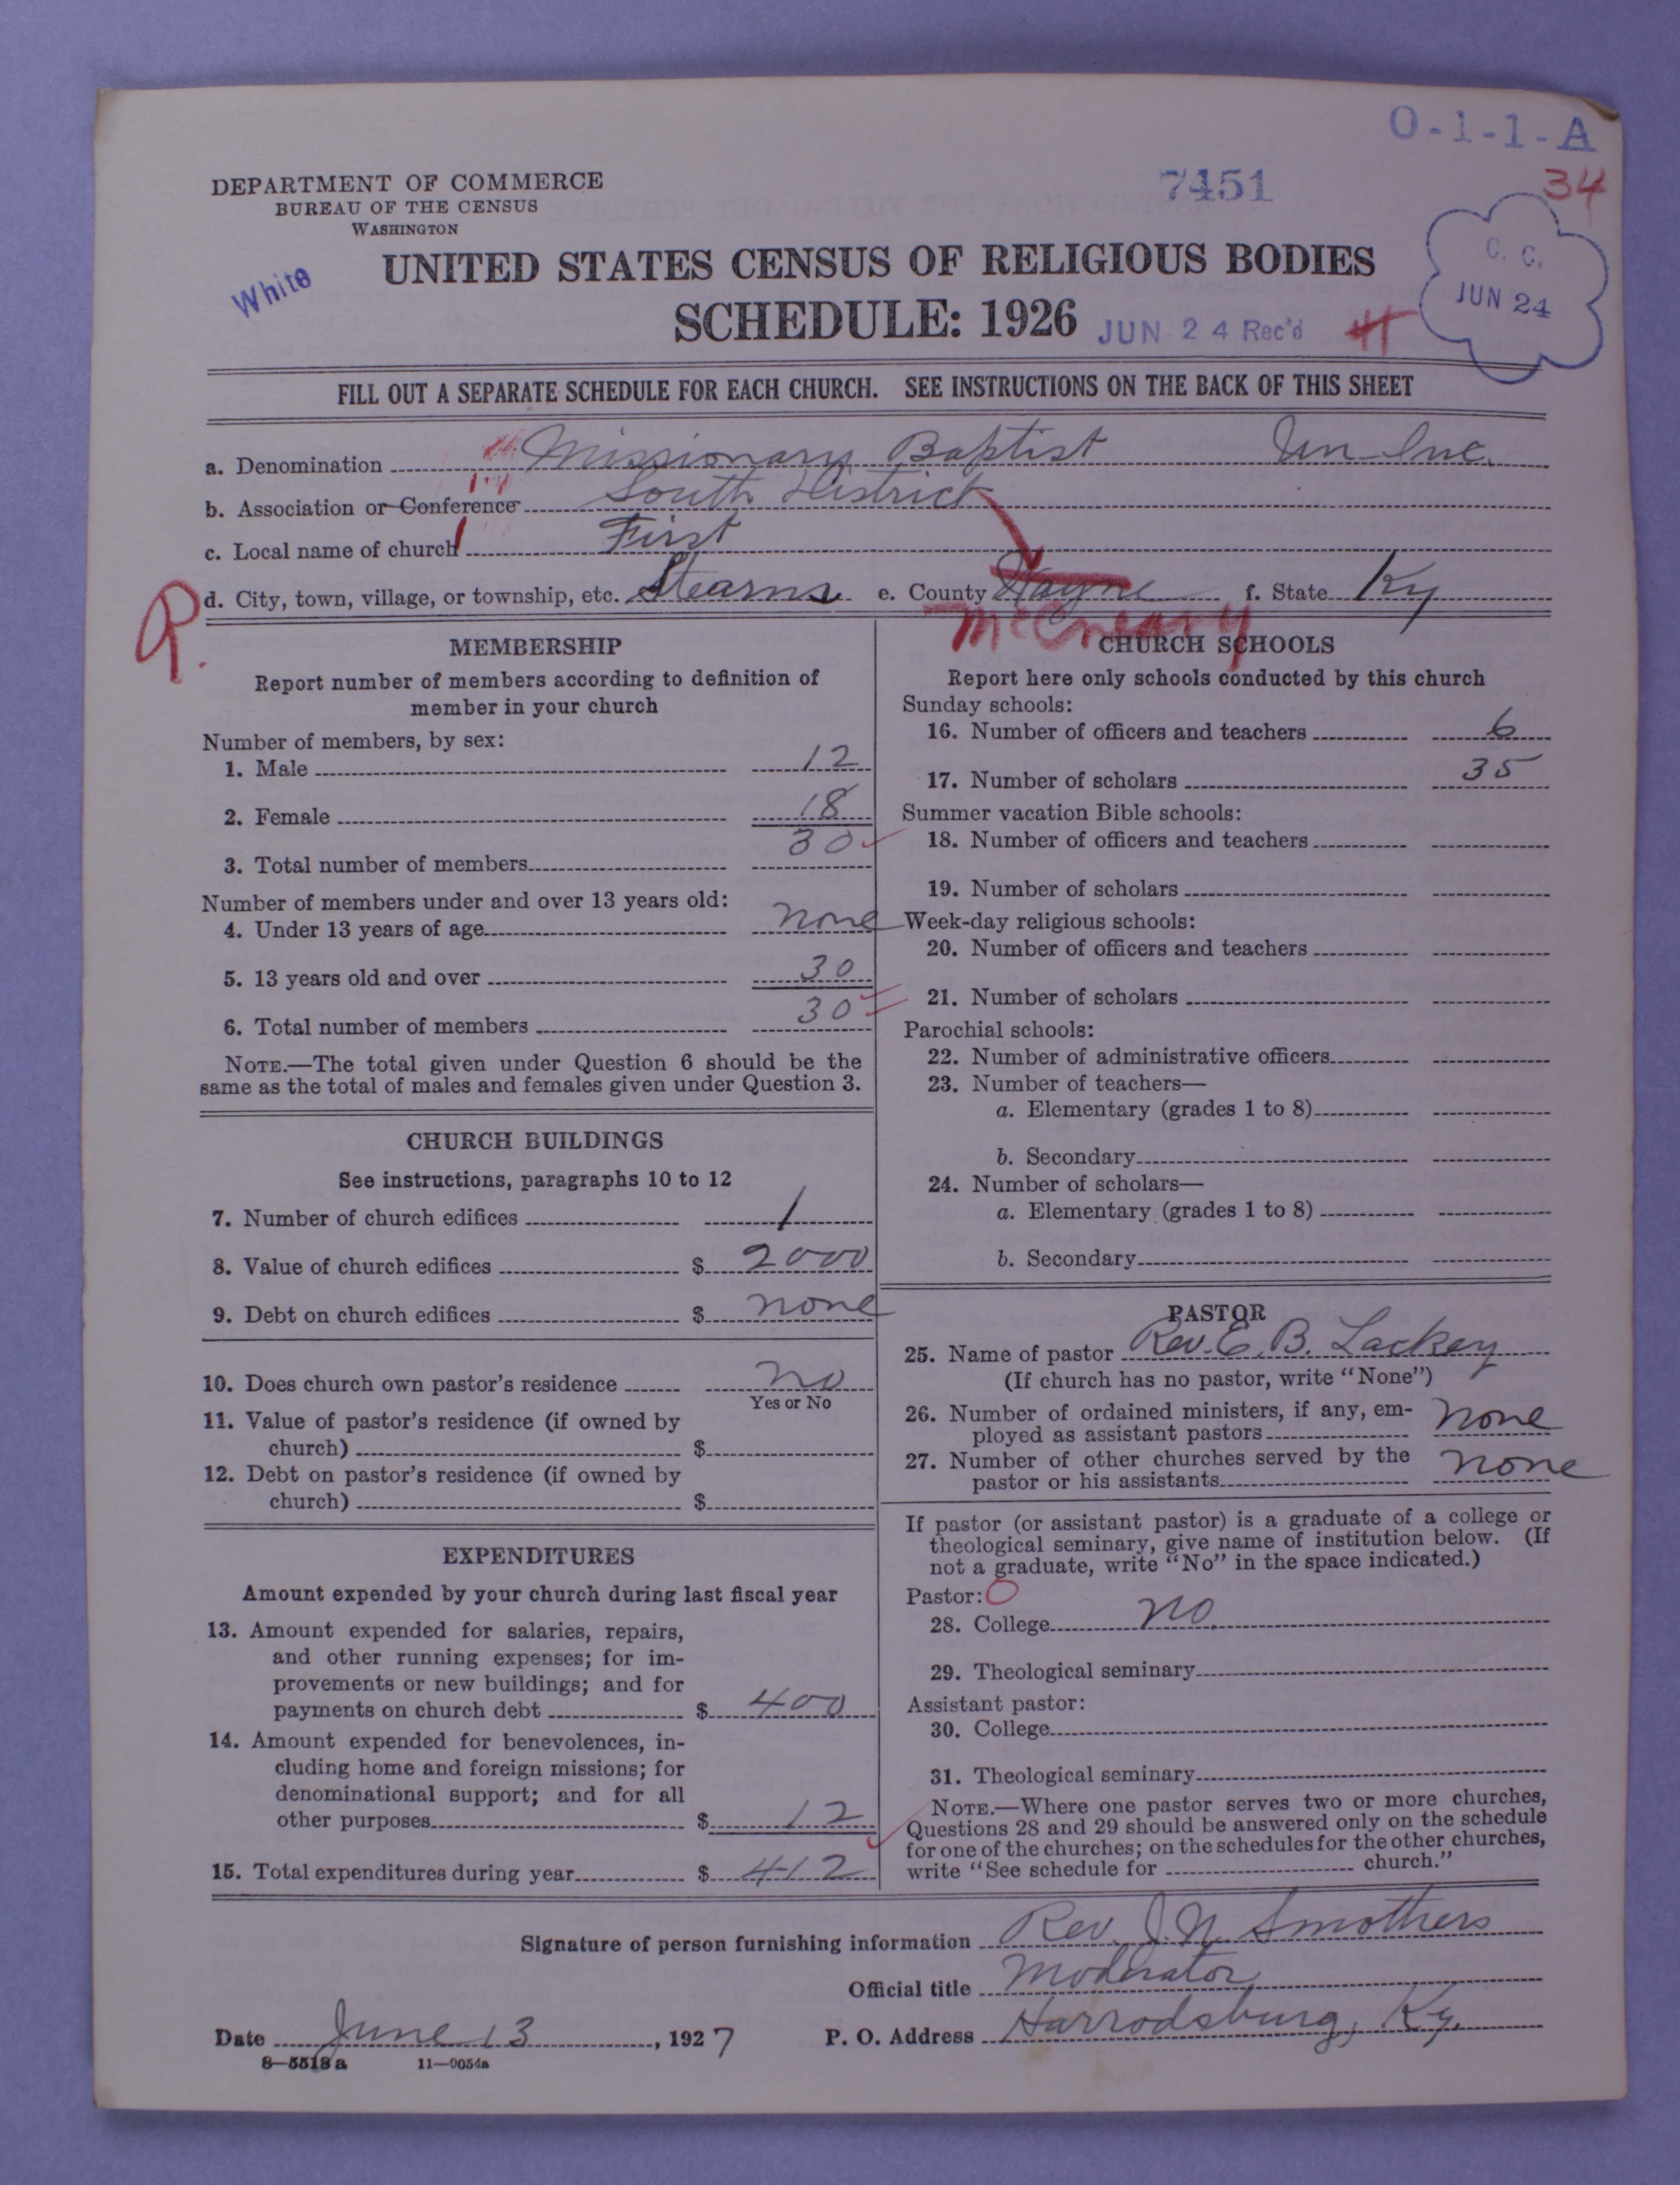 O-1-1-A
DEPARTMENT OF COMMERCE
BUREAU OF THE CENSUS
WASHINGTON
7451
34
White
UNITED STATES CENSUS OF RELIGIOUS BODIES
SCHEDULE: 1926
JUN 24 Rec'd
C. C.
JUN 24
FILL OUT A SEPARATE SCHEDULE FOR EACH CHURCH. SEE INSTRUCTIONS ON THE BACK OF THIS SHEET
a. Denomination Missionary Baptist Un-Inc.
b. Association or Conference South District
c. Local name of church First
d. City, town, village, or township, etc. Stearns e. County Wayne f. State Ky
McCreary
MEMBERSHIP
Report number of members according to definition of
member in your church
Number of members, by sex:
1. Male 12
2. Female 18
3. Total number of members 30
Number of members under and over 13 years old:
4. Under 13 years of age none
5. 13 years old and over 30
6. Total number of members 30
NOTE.—The total given under Question 6 should be the
same as the total of males and females given under Question 3.
CHURCH BUILDINGS
See instructions, paragraphs 10 to 12
7. Number of church edifices 1
8. Value of church edifices $ 2000
9. Debt on church edifices $ none
10. Does church own pastor's residence no
Yes or No
11. Value of pastor's residence (if owned by
church) $
12. Debt on pastor's residence (if owned by
church) $
EXPENDITURES
Amount expended by your church during last fiscal year
13. Amount expended for salaries, repairs,
and other running expenses; for im-
provements or new buildings; and for
payments on church debt $ 400
14. Amount expended for benevolences, in-
cluding home and foreign missions; for
denominational support; and for all
other purposes $ 12
15. Total expenditures during year $ 412
CHURCH SCHOOLS
Report here only schools conducted by this church
Sunday schools:
16. Number of officers and teachers 6
17. Number of scholars 35
Summer vacation Bible schools:
18. Number of officers and teachers
19. Number of scholars
Week-day religious schools:
20. Number of officers and teachers
21. Number of scholars
Parochial schools:
22. Number of administrative officers
23. Number of teachers—
a. Elementary (grades 1 to 8)
b. Secondary
24. Number of scholars—
a. Elementary (grades 1 to 8)
b. Secondary
PASTOR
25. Name of pastor Rev. E. B. Lackey
(If church has no pastor, write "None")
26. Number of ordained ministers, if any, em-
ployed as assistant pastors none
27. Number of other churches served by the
pastor or his assistants none
If pastor (or assistant pastor) is a graduate of a college or
theological seminary, give name of institution below. (If
not a graduate, write "No" in the space indicated.)
Pastor:
28. College no.
29. Theological seminary
Assistant pastor:
30. College
31. Theological seminary
NOTE.—Where one pastor serves two or more churches,
Questions 28 and 29 should be answered only on the schedule
for one of the churches; on the schedules for the other churches,
write "See schedule for church."
Signature of person furnishing information Rev. J. N. Smothers
Official title Moderator
Date June 13, 1927 P. O. Address Harrodsburg, Ky.
8—5518a 11—9054a